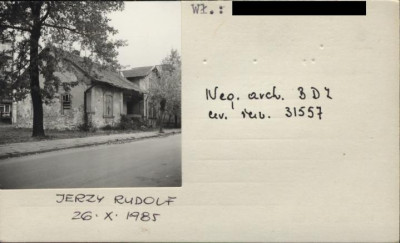 Wł.:
Neg. arch. BDZ
nr. 31557
JERZY RUDOLF
26.X.1985